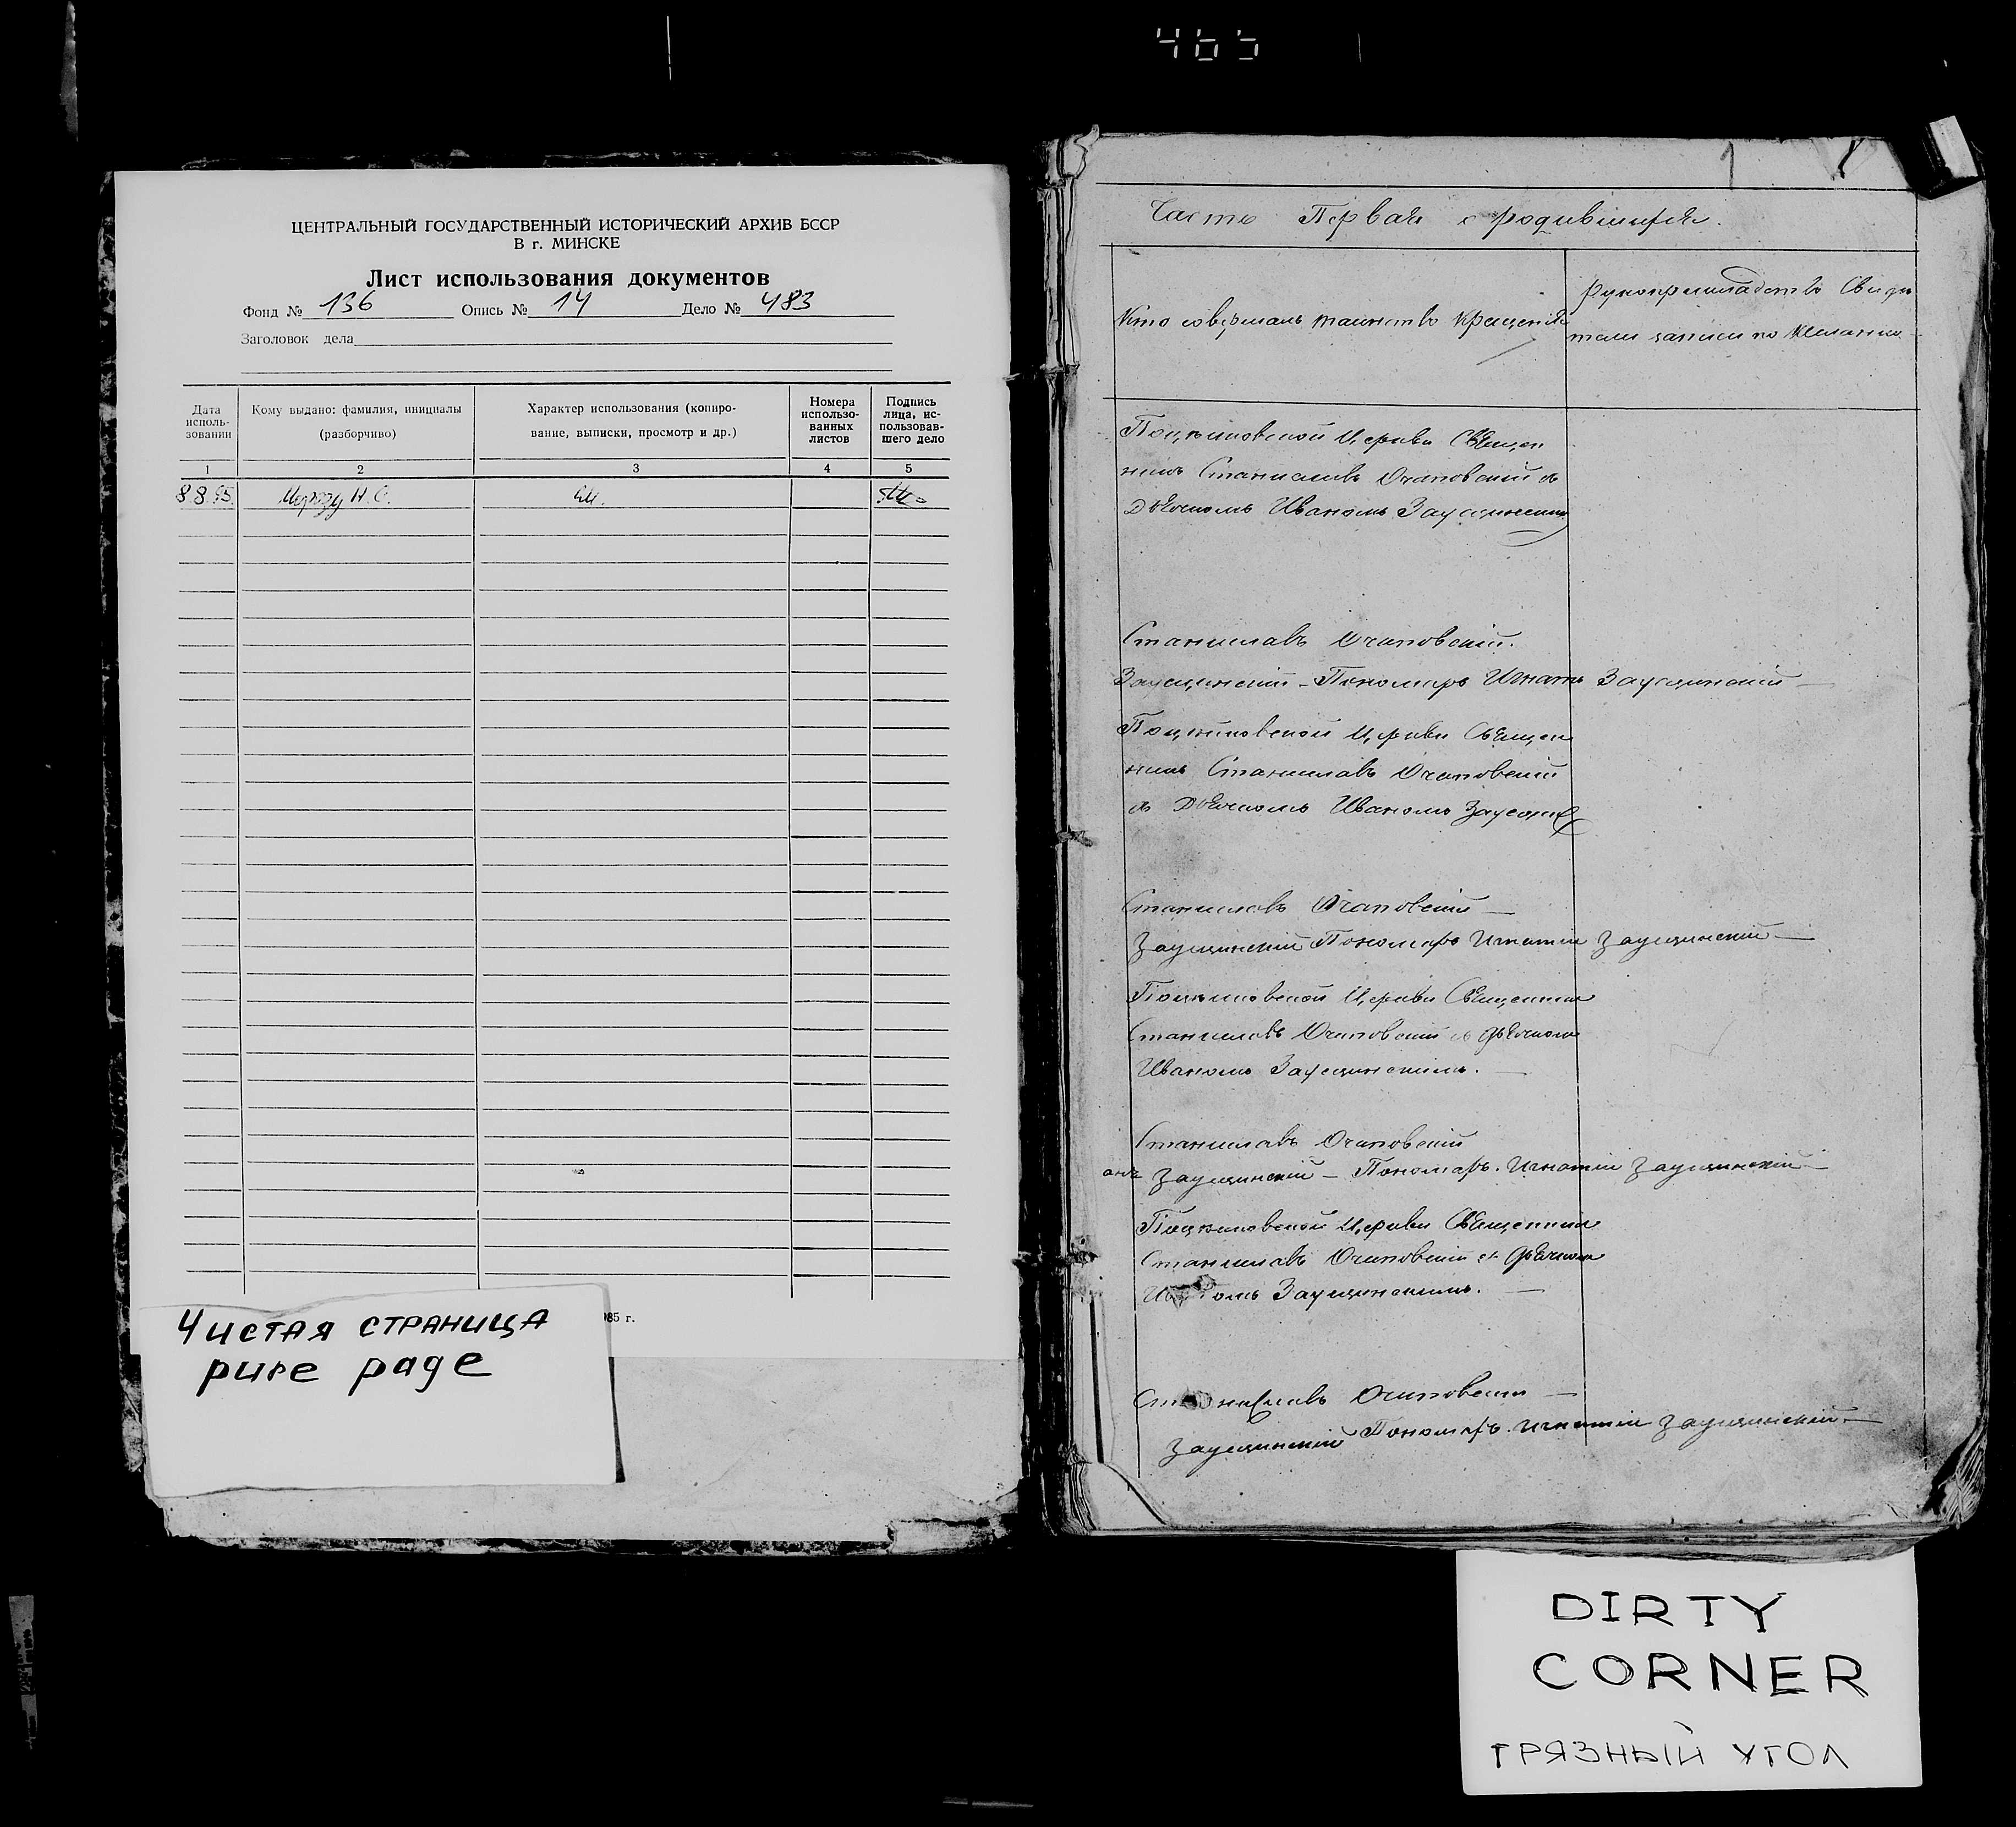 465
ЦЕНТРАЛЬНЫЙ ГОСУДАРСТВЕННЫЙ ИСТОРИЧЕСКИЙ АРХИВ БССР
В г. МИНСКЕ
Лист использования документов
Фонд № 136 Опись № 14 Дело № 483
Заголовок дела
Дата исполь- зовании
Кому выдано: фамилия, инициалы (разборчиво)
Характер использования (копиро- вание, выписки, просмотр и др.)
Номера использо- ванных листов
Подпись лица, ис- пользовав- шего дело
1 2 3 4 5
8 8 95
985 г.
Чистая страница
pure page
1
Часть Первая о родившихся.
Кто совершалъ таинство крещенія
рукоприкладство Свидѣ
телей записи по желанію
Церкви Священ
никъ Станиславъ Очаповскій съ
Дьячкомъ Иваномъ Заусцинскимъ
Станиславъ Очаповскій.
Заусцинскій – Пономарь Игнатъ Заусцинскій –
Церкви Священ
никъ Станиславъ Очаповскій
съ Дьячкомъ Иваномъ
Станиславъ Очаповскій –
Заусцинскій Пономарь Игнатій Заусцинскій –
Церкви Священникъ
Станиславъ Очаповскій съ Дьячкомъ
Иваномъ Заусцинскимъ. –
Станиславъ Очаповскій
анъ Заусцинскій – Пономарь. Игнатій Заусцинскій –
Церкви Священникъ
Станиславъ Очаповскій съ Дьячкомъ
Заусцинскимъ. –
Очаповскій –
Заусцинскій Пономарь. Игнатій Заусцинскій –
DIRTY
CORNER
ГРЯЗНЫЙ УГОЛ